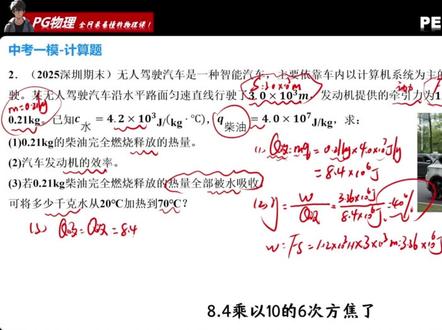 PG物理 全网最易懂的物理课！
PE
中考一模-计算题
2.（2025深圳期末）无人驾驶汽车是一种智能汽车，主要依靠车内以计算机系统为主的
驶。某无人驾驶汽车沿水平路面匀速直线行驶了3.0×10³m，发动机提供的牵引力为1.
0.21kg。已知c水=4.2×10³J/(kg·℃)，q柴油=4.0×10⁷J/kg，求：
(1)0.21kg的柴油完全燃烧释放的热量。
(2)汽车发动机的效率。
(3)若0.21kg柴油完全燃烧释放的热量全部被水吸收，
可将多少千克水从20℃加热到70℃？
(3) Q吸=Q放=8.4
(1) Q放=mq=0.21kg×4.0×10⁷J/kg
=8.4×10⁶J
(2) η=W/Q放=3.36×10⁶J/8.4×10⁶J=40%
W=Fs=1.2×10³N×3×10³m=3.36×10⁶J
8.4乘以10的6次方焦了